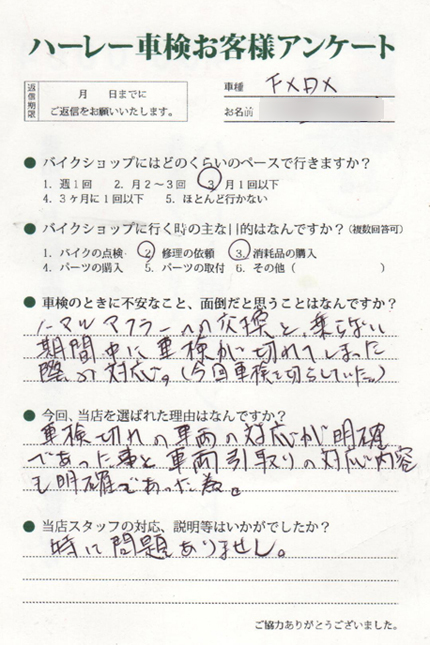 ハーレー車検お客様アンケート
返信期限
月　日までに
ご返信をお願いいたします。
車種 FXDX
お名前
● バイクショップにはどのくらいのペースで行きますか？
1. 週1回　2. 月2～3回　3. 月1回以下
4. 3ヶ月に1回以下　5. ほとんど行かない
● バイクショップに行く時の主な目的はなんですか？（複数回答可）
1. バイクの点検　2. 修理の依頼　3. 消耗品の購入
4. パーツの購入　5. パーツの取付　6. その他（　　　　）
● 車検のときに不安なこと、面倒だと思うことはなんですか？
ノーマルマフラーへの交換と、乗らない
期間中に車検が切れてしまった
際の対応。（今回車検を切らしていた
● 今回、当店を選ばれた理由はなんですか？
車検切れの車両の対応が明確
であった事と車両引取りの対応内容
も明確であった為。
● 当店スタッフの対応、説明等はいかがでしたか？
特に問題ありません。
ご協力ありがとうございました。